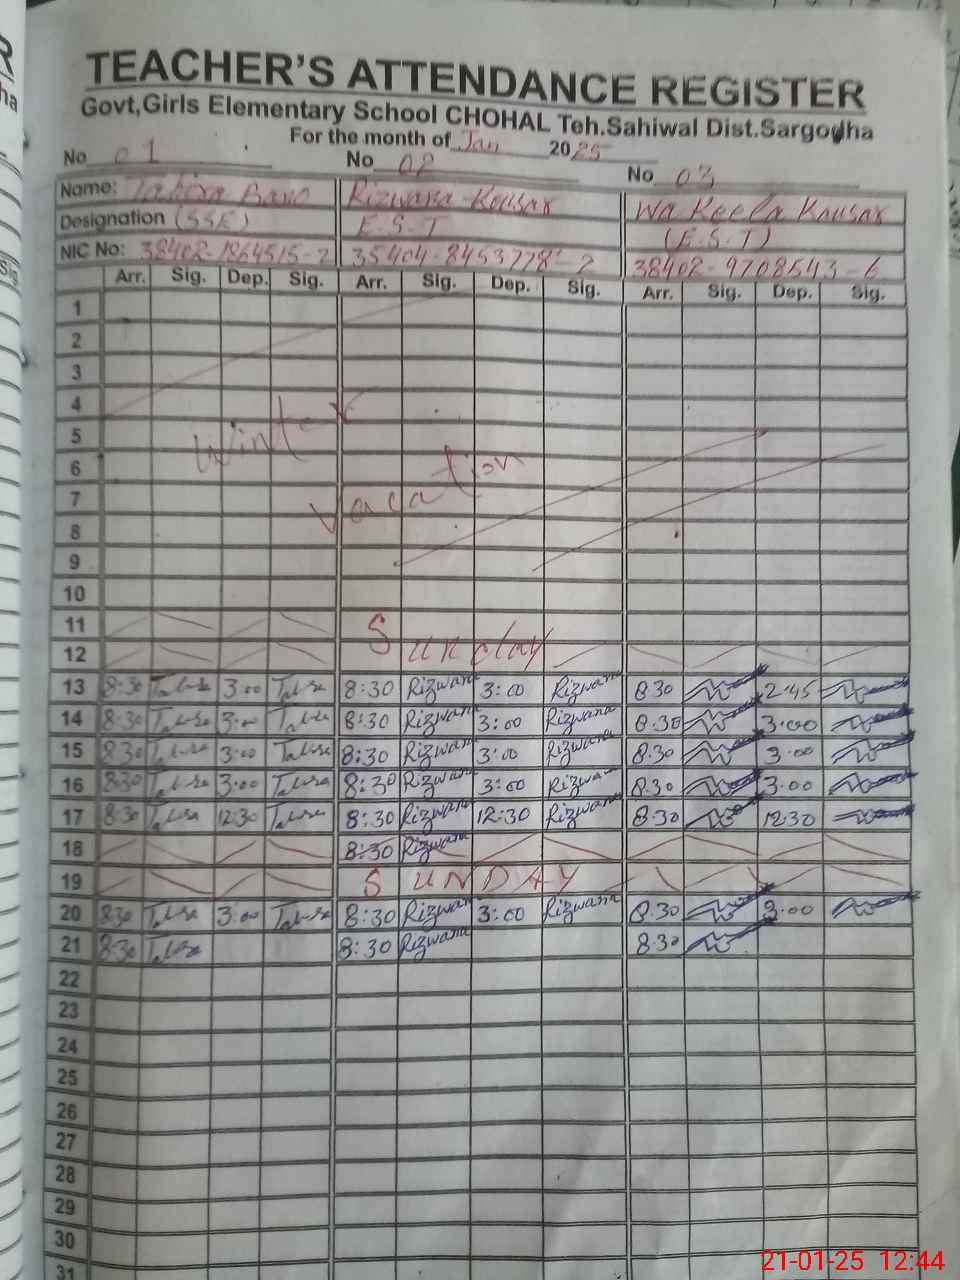 TEACHER'S ATTENDANCE REGISTER
Govt,Girls Elementary School CHOHAL Teh.Sahiwal Dist.Sargodha
For the month of Jan 2025
No 01 No 02 No 03
Name: Tahira Bano Rizwana Kousar Wakeela Kousar
Designation (SSE) E.S.T (E.S.T)
NIC No: 38402-1864515-2 35404-8453778-2 38402-9708543-6
Arr. Sig. Dep. Sig. Arr. Sig. Dep. Sig. Arr. Sig. Dep. Sig.
1
2
3
4
Winter
5
6
Vacation
7
8
9
10
11
12 Sunday
13 8:30 3:00 8:30 Rizwana 3:00 Rizwana 8:30 2:45
14 8:30 3:00 8:30 Rizwana 3:00 Rizwana 8:30 3:00
15 8:30 3:00 8:30 Rizwana 3:00 Rizwana 8:30 3:00
16 8:30 3:00 8:30 Rizwana 3:00 Rizwana 8:30 3:00
17 8:30 12:30 8:30 Rizwana 12:30 Rizwana 8:30 12:30
18 8:30 Rizwana
19 SUNDAY
20 8:30 3:00 8:30 Rizwana 3:00 Rizwana 8:30 3:00
21 8:30 8:30 Rizwana 8:30
22
23
24
25
26
27
28
29
30
31
21-01-25 12:44